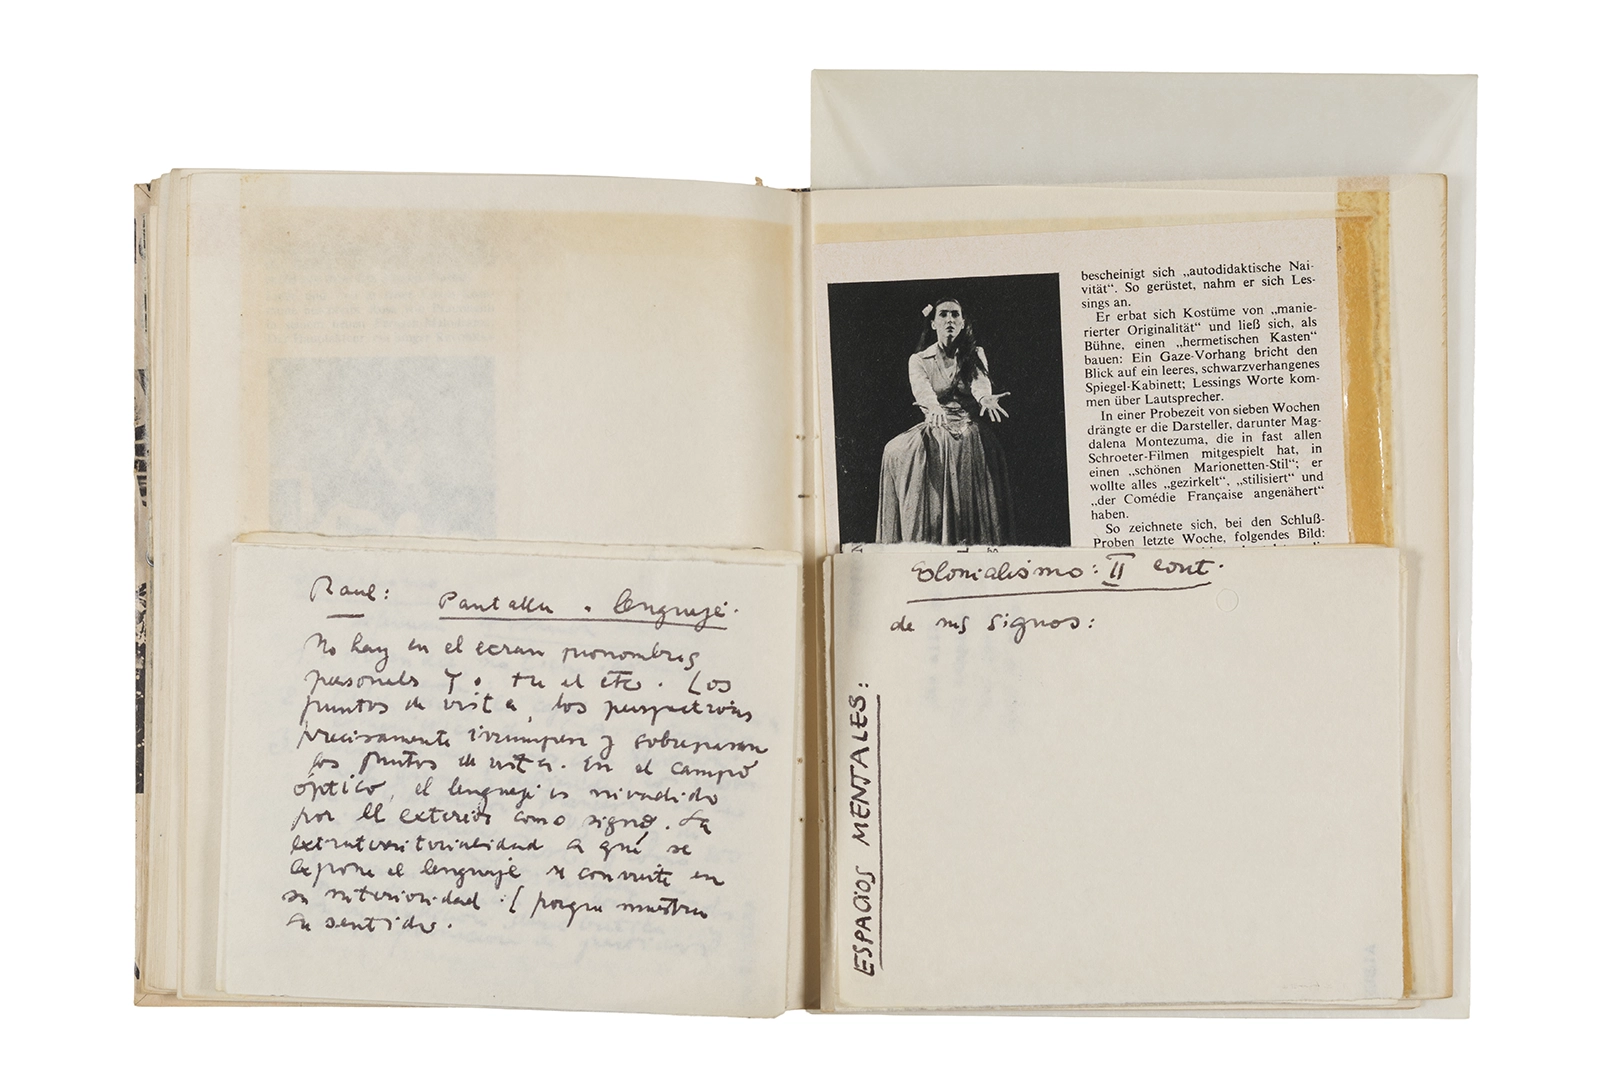 Raul: Pantalla . lenguaje.
No hay en el ecran pronombres
personales Yo tu el etc. Los
puntos de vista, los perspectivas
precisamente irrumpen y sobrepasan
los puntos de vista. En el campo
óptico, el lenguaje es invadido
por el exterior como signo. La
extraterritorialidad a que se
expone el lenguaje se convierte en
su interioridad : ( porque muestra
su sentido.
bescheinigt sich „autodidaktische Nai-
vität“. So gerüstet, nahm er sich Les-
sings an.
Er erbat sich Kostüme von „manie-
rierter Originalität“ und ließ sich, als
Bühne, einen „hermetischen Kasten“
bauen: Ein Gaze-Vorhang bricht den
Blick auf ein leeres, schwarzverhangenes
Spiegel-Kabinett; Lessings Worte kom-
men über Lautsprecher.
In einer Probezeit von sieben Wochen
drängte er die Darsteller, darunter Mag-
dalena Montezuma, die in fast allen
Schroeter-Filmen mitgespielt hat, in
einen „schönen Marionetten-Stil“; er
wollte alles „gezirkelt“, „stilisiert“ und
„der Comédie Française angenähert“
haben.
So zeichnete sich, bei den Schluß-
Proben letzte Woche, folgendes Bild:
Colonialismo: II cont.
de mis signos:
ESPACIOS MENTALES: